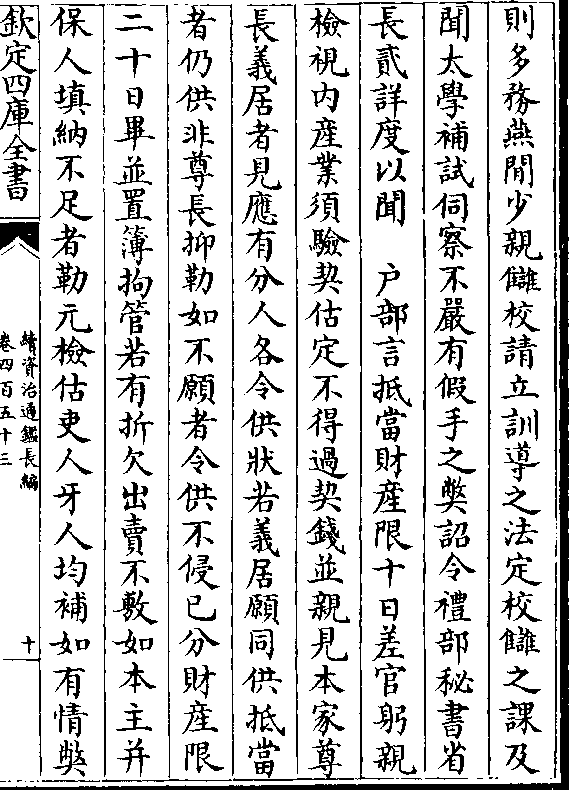 則多務燕閒少親讎校請立訓導之法定校讎之課及
聞太學補試伺察不嚴有假手之弊詔令禮部秘書省
長貳詳度以聞　户部言抵當財産限十日差官躬親
檢視内産業須驗契估定不得過契錢並親見本家尊
長義居者見應有分人各令供狀若義居願同供抵當
者仍供非尊長抑勒如不願者令供不侵已分財産限
二十日畢並置簿拘管若有折欠出賣不敷如本主并
保人填納不足者勒元檢估吏人牙人均補如有情弊
欽定四庫全書
續資治通鑑長編
卷四百五十三
十